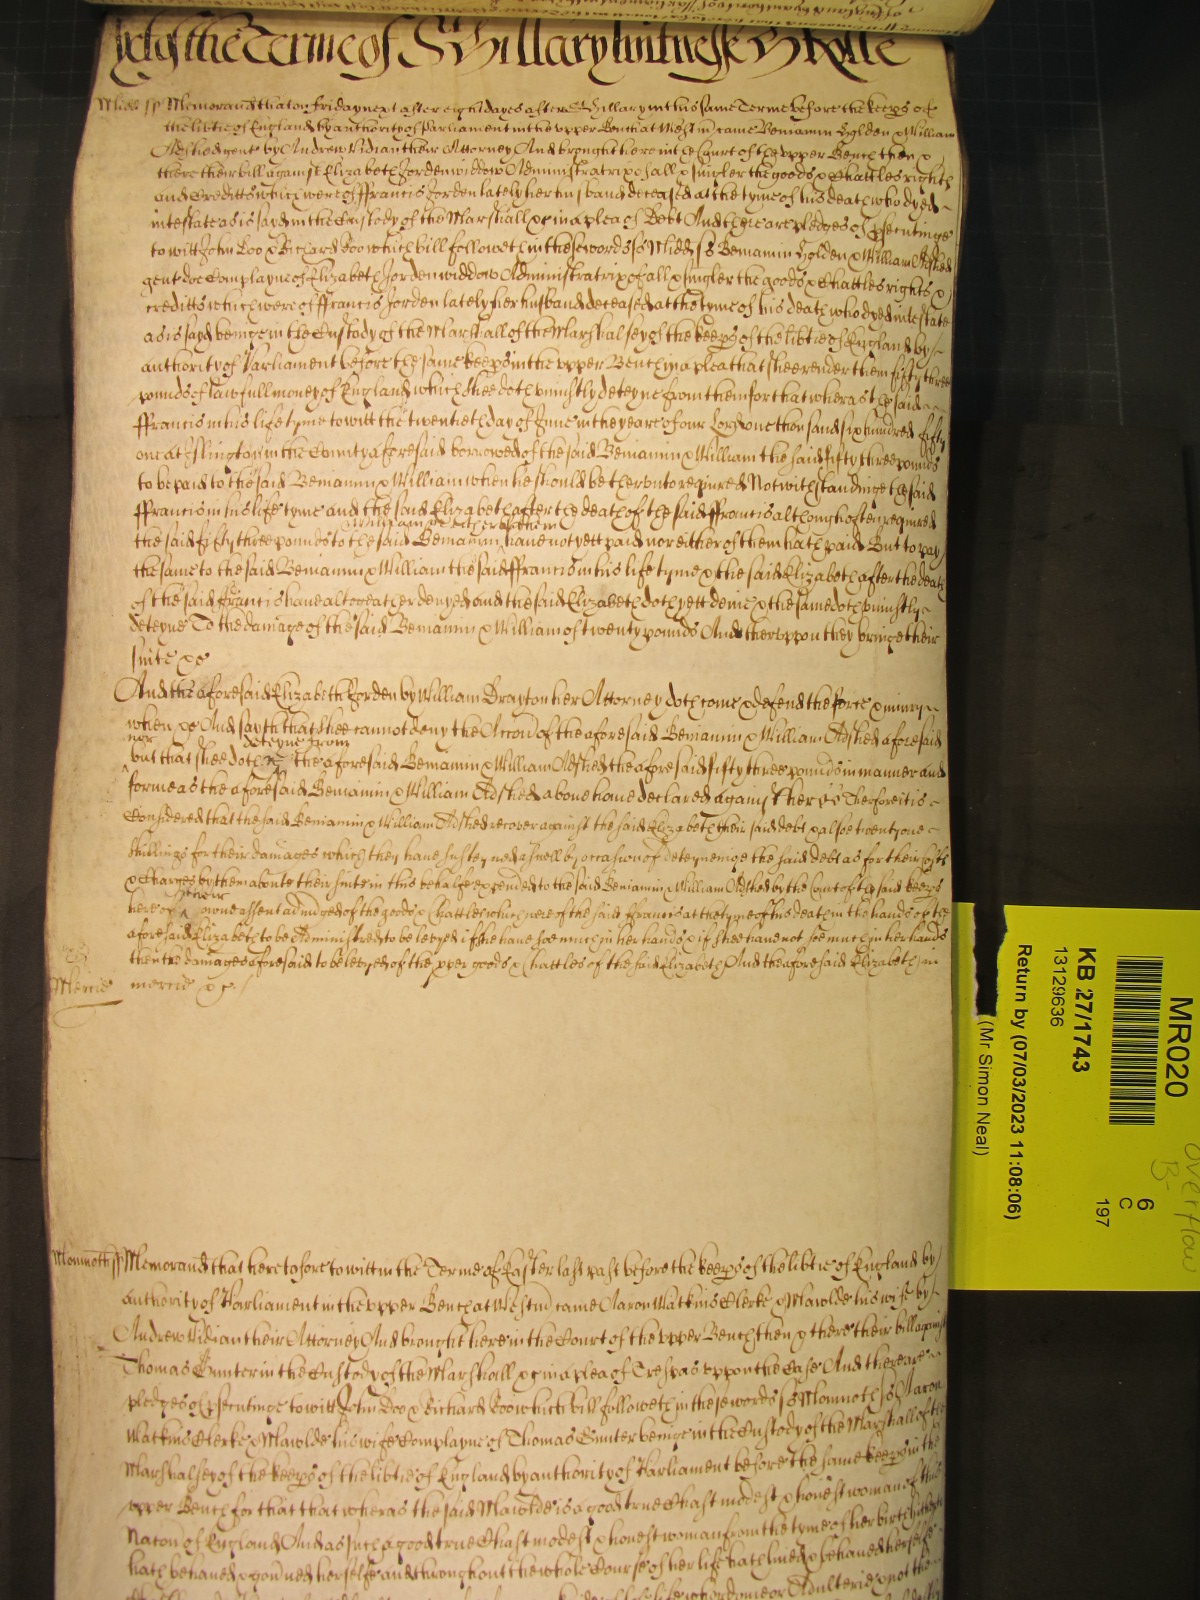 yet of the Terme of St Hillary witnesse H Rolle
Midd ss Memorand that on friday next after eight dayes after St Hillary in this same Terme before the keeps of
the libtie of England by authority of Parliament in the upper Bench at Westm came Beniamin Holden & William
Adshed gent by Andrew Vidian their Attorney And brought here in the Court of the upper Bench then &
there their bill against Elizabeth Jorden widdow Administratrix of all & singler the goods & Chattles rights
and Creditts which were of ffrancis Jorden lately her husband deceased at the tyme of his death who dyed
intestate as is sayd in the Custody of the Marshall &c in a plea of Debt And there are pledges of psecutinge
to witt John Doo & Richard Roo which bill followeth in these words ss Midd ss Beniamin Holden & William Adshed
gent doe Complayne of Elizabeth Jorden widdow Administratrix of all & singler the goods & Chattles rights &
creditts which were of ffrancis Jorden lately her husband deceased at the tyme of his death who dyed intestate
as is sayd beinge in the Custody of the Marshall of the Marshalsey of the keeps of the libtie of England by
authority of Parliament before the same keeps in the upper Bench in a plea that shee render them fifty three
pounds of lawfull money of England which shee doth uniustly deteyne from them for that wheras the said
ffrancis in his life tyme to witt the twentieth day of June in the yeare of our Lord one thousand six hundred fifty
one at Islington in the County aforesaid borrowed of the said Beniamin & William the said fifty three pounds
to be paid to the said Beniamin & William when he should be therunto required Notwithstandinge the said
ffrancis in his life tyme and the said Elizabeth after the death of the said ffrancis although often required
the said fifty three pounds to the said Beniamin & William or either of them have not yett paid nor either of them hath paid But to pay
the same to the said Beniamin & William the said ffrancis in his life tyme & the said Elizabeth after the death
of the said ffrancis have altogeather denyed and the said Elizabeth doth yett denie & the same doth uniustly
deteyne To the damage of the said Beniamin & William of twenty pounds And theruppon they bringe their
suite &c
And the aforesaid Elizabeth Jorden by William Drayton her Attorney doth come & defend the force & iniury
when &c And sayth that shee cannot deny the Accon of the aforesaid Beniamin & William Adshed aforesaid
nor but that shee doth deteyne from the aforesaid Beniamin & William Adshed the aforesaid fifty three pounds in manner and
forme as the aforesaid Beniamin & William Adshed above have declared against her &c Therfore it is
Considered that the said Beniamin & William Adshed recover against the said Elizabeth their said debt & alsoe twenty one
shillings for their damages which they have susteyned aswell by occasion of deteyneinge the said debt as for their Costs
& Charges by them aboute their suite in this behalfe expended to the said Beniamin & William Adshed by the Court of the said keeps
here of their owne assent adiudged of the goods & Chattles which were of the said ffrancis at the tyme of his death in the hands of the
aforesaid Elizabeth to be Administred to be levyed if shee have soe much in her hands & if shee have not soe much in her hands
then the damages aforesaid to be levyed of the pper goods & Chattles of the said Elizabeth And the aforesaid Elizabeth in
Mercie mercie &c
Monmoth ss Memorand that heretofore to witt in the Terme of Easter last past before the keeps of the libtie of England by
authority of Parliament in the upper Bench at Westm came Aaron Watkins Clerke & Mawlde his wife by
Andrew Vidian their Attorney And brought here in the Court of the upper Bench then & there their bill against
Thomas Gunter in the Custody of the Marshall &c in a plea of Trespas uppon the Case And there are
pledges of psecutinge to witt John Doo & Richard Roo which bill followeth in these words ss Monmoth ss Aaron
Watkins Clerke & Mawlde his wife Complayne of Thomas Gunter beinge in the Custody of the Marshall of the
Marshalsey of the keeps of the libtie of England by authority of Parliament before the same keeps in the
upper Bench for that that wheras the said Mawlde is a good true Chast modest & honest woman of this
Nation of England And as such a good true Chast modest & honest woman from the tyme of her birth hitherto
hath behaved & govned herselfe and throughout the whole Course of her life hath lived & behaved herselfe
MR020
KB 27/1743
13129636
Return by (07/03/2023 11:08:06)
(Mr Simon Neal)
6
C
197
overflow
B-